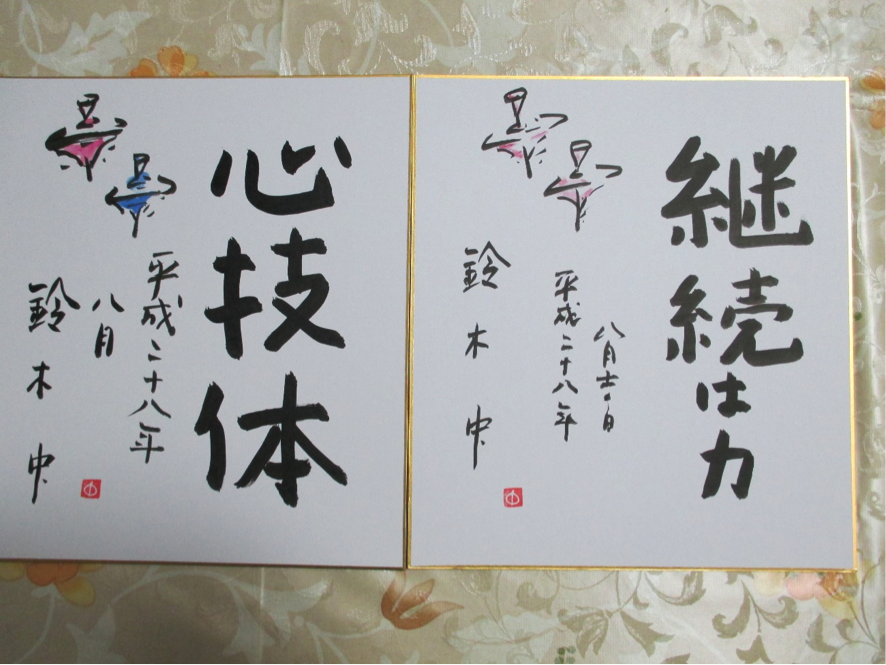 継続は力
八月十六日
平成二十八年
鈴木中
中
心技体
平成二十八年
八月
鈴木中
中